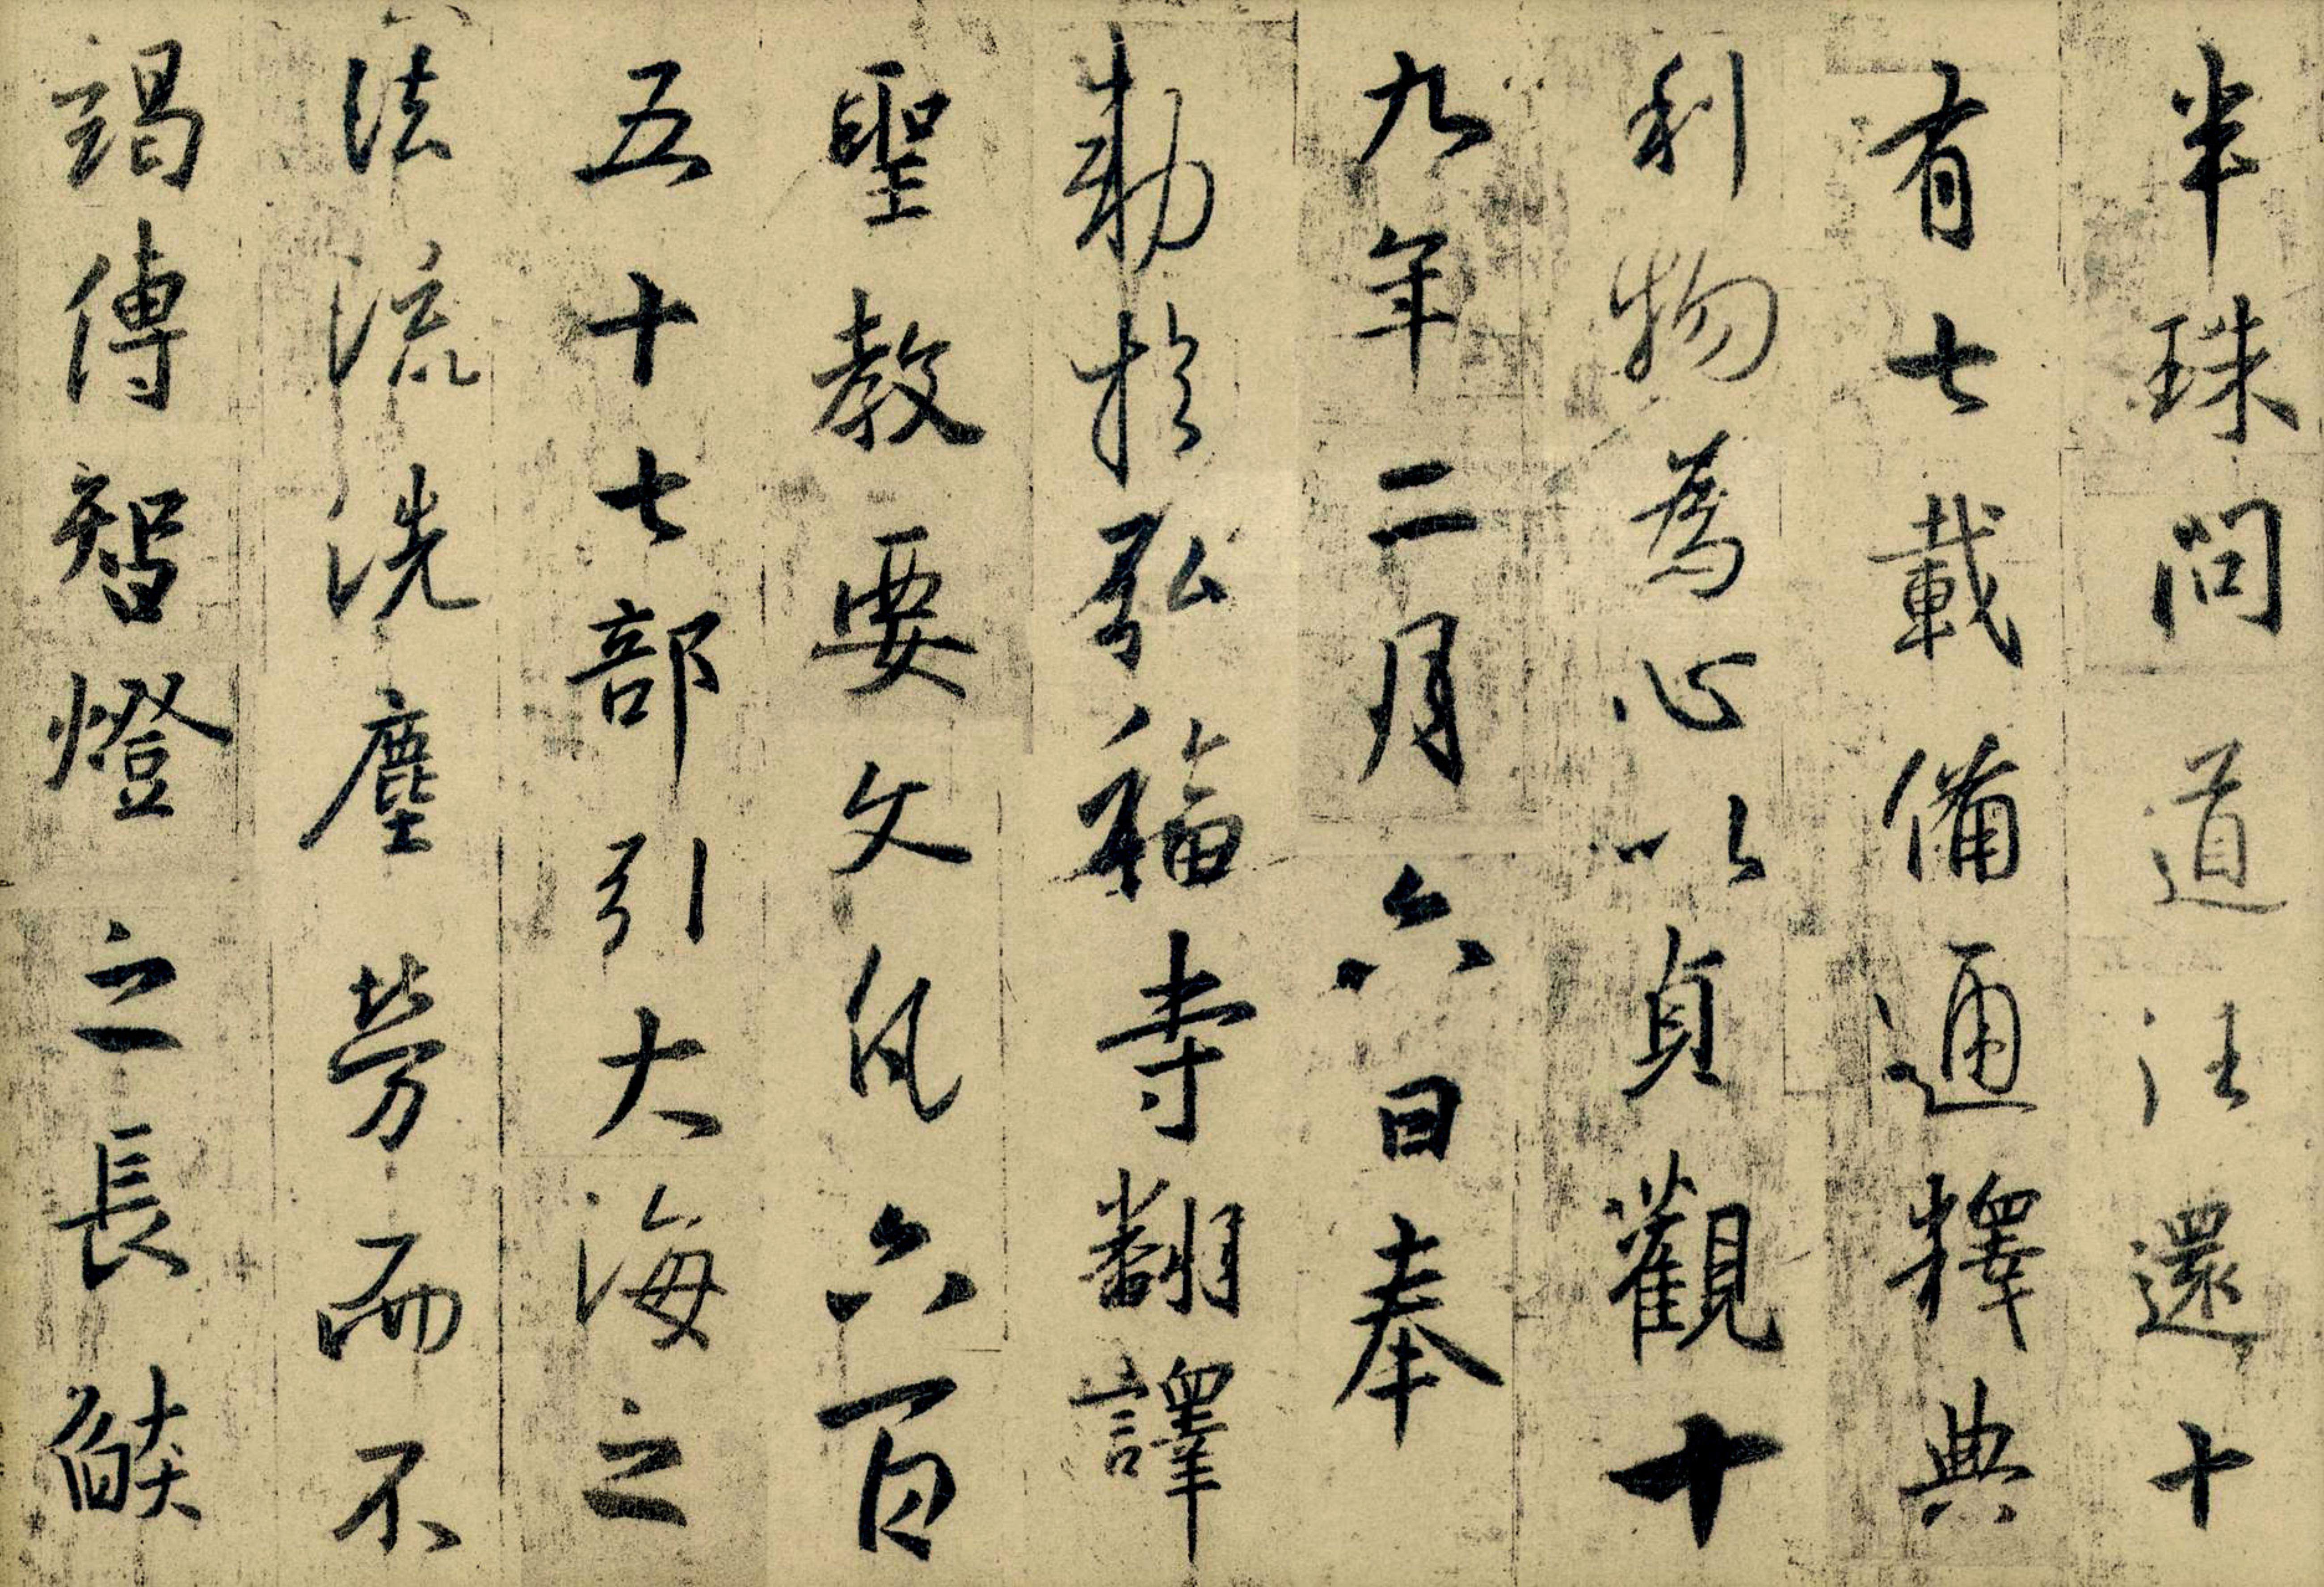 半珠問道往還十
有七載備通釋典
利物為心以貞觀十
九年二月六日奉
勅於弘福寺翻譯
聖教要文凡六百
五十七部引大海之
法流洗塵勞而不
竭傳智燈之長焰